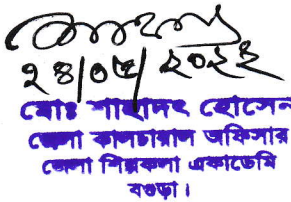 ২৪/০৫/২০২২
মোঃ শাহাদৎ হোসেন
জেলা কালচারাল অফিসার
জেলা শিল্পকলা একাডেমি
বগুড়া।